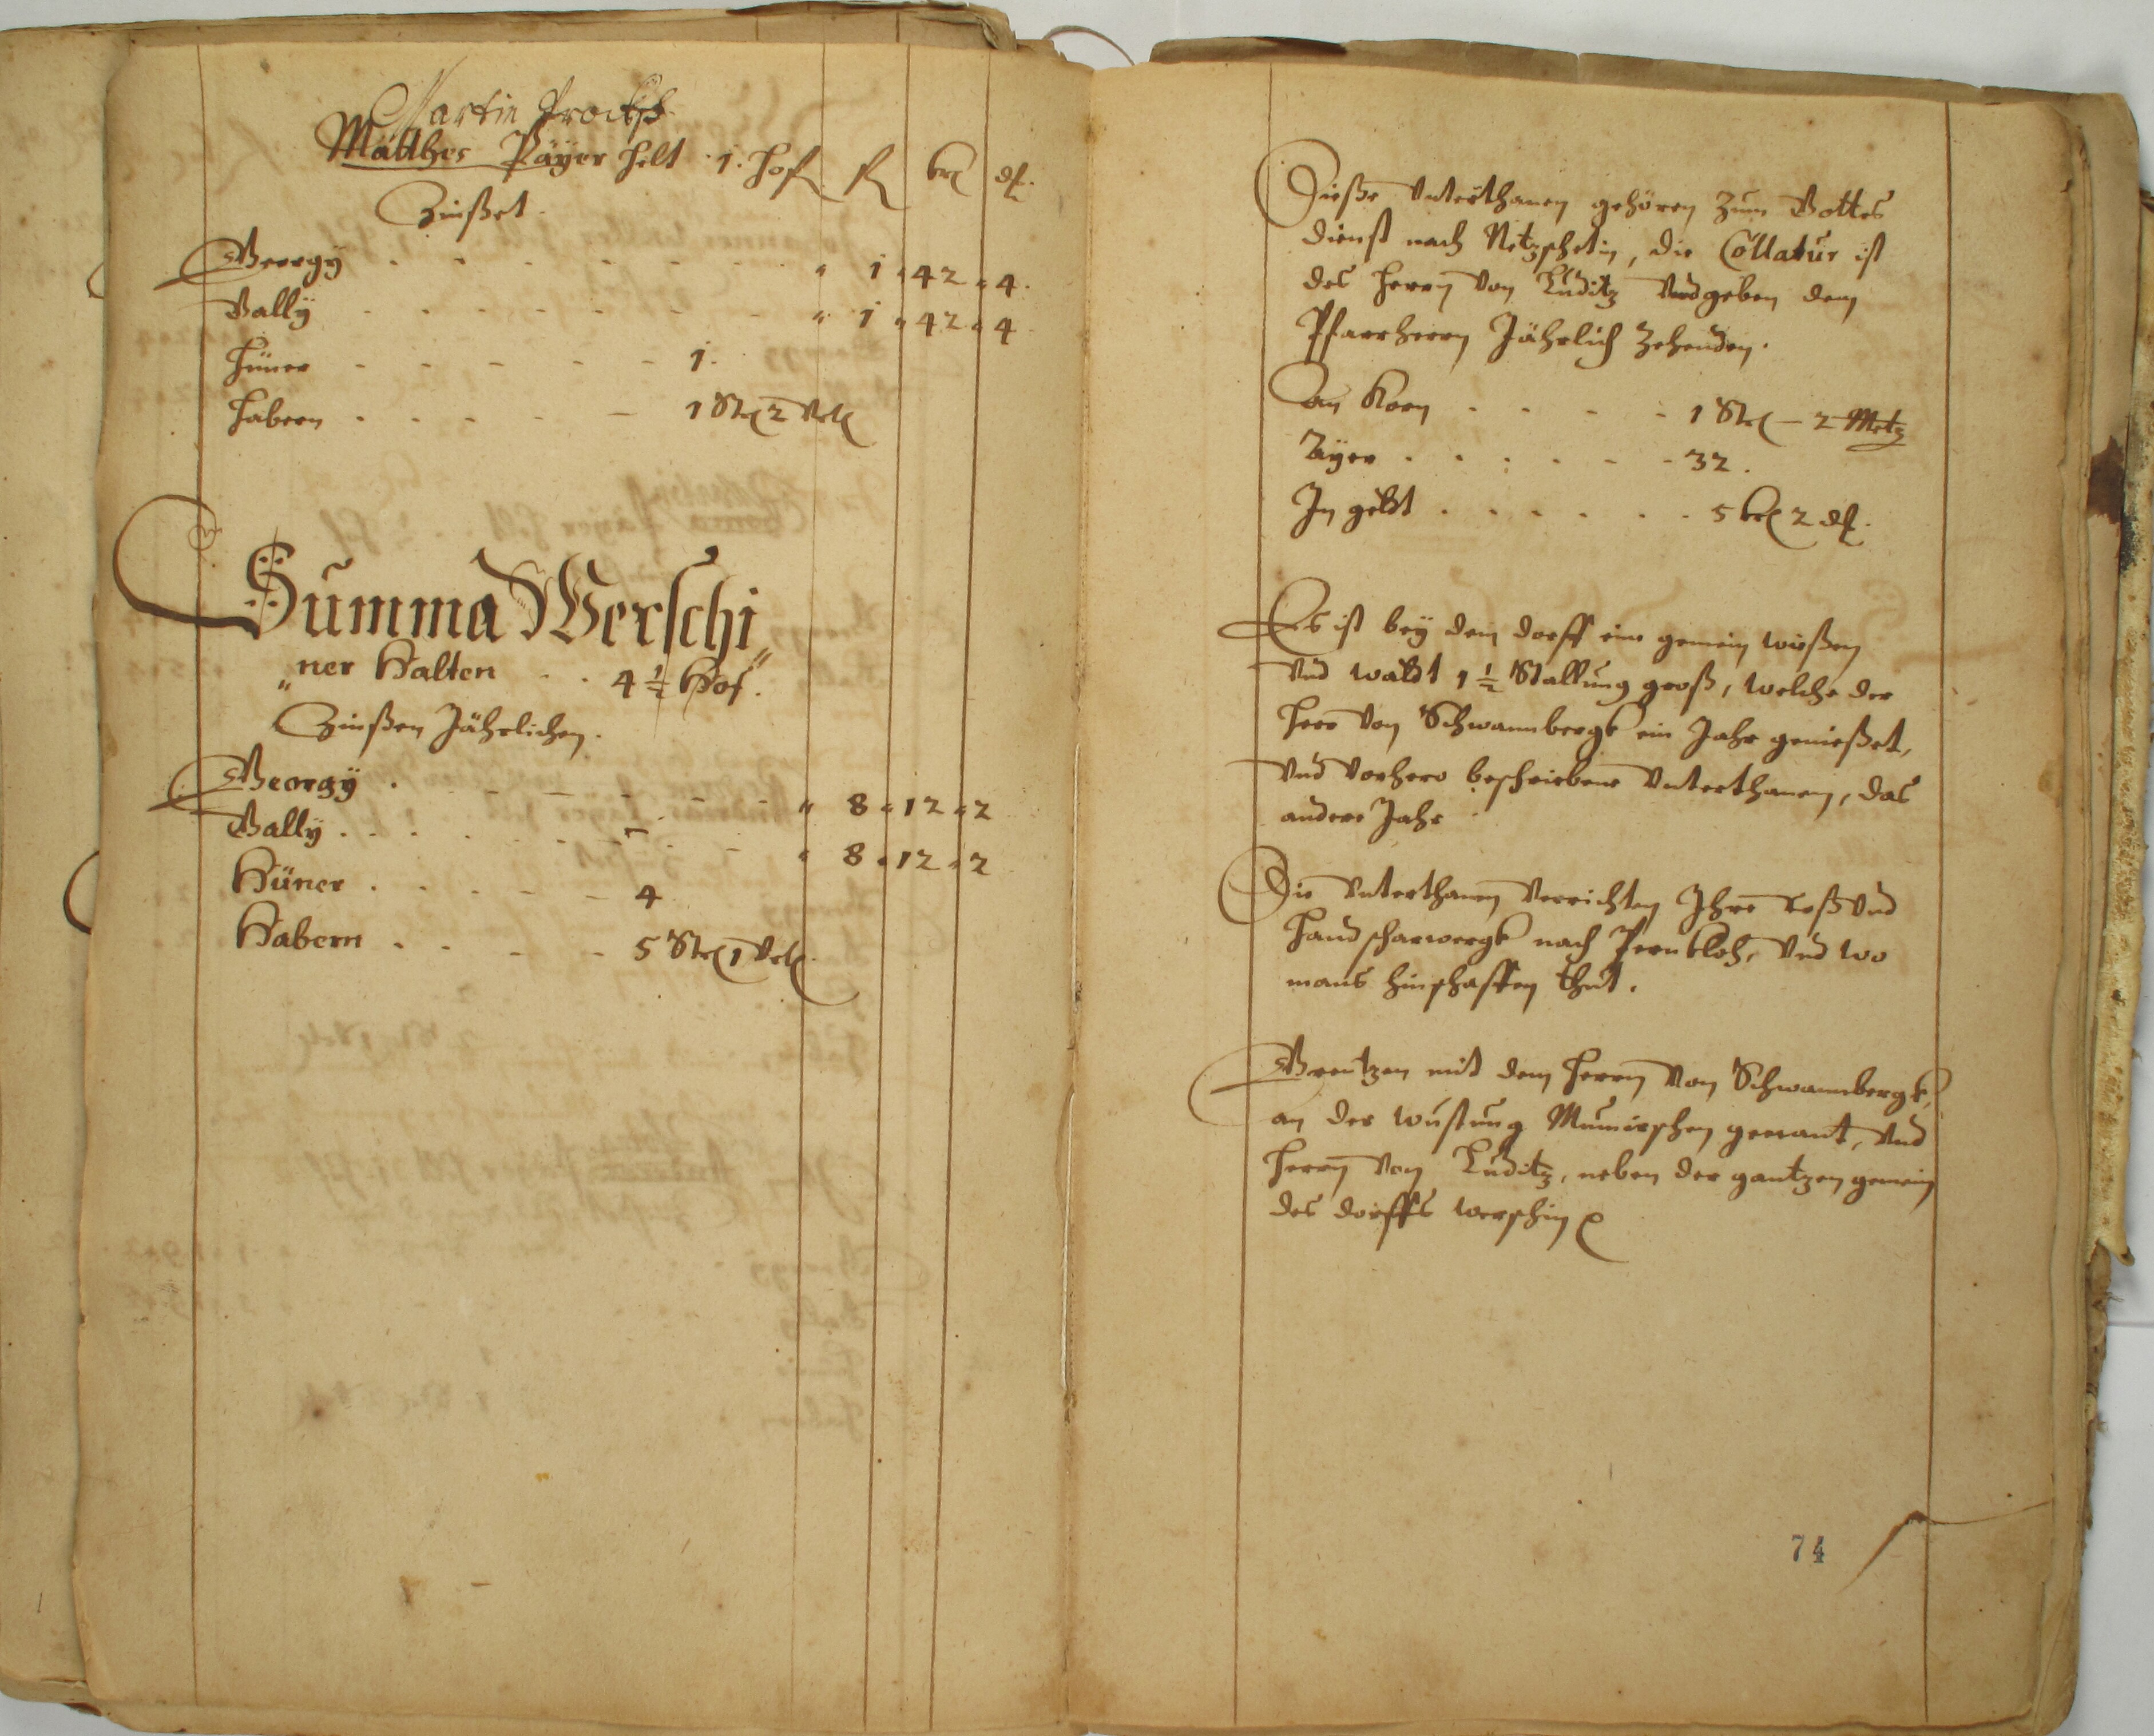 Martin Procksch
Matthes Päÿer helt . 1 . Hoff fl kr dl.
Zinßet.
Georgÿ . . . . . . „ 1 „ 42 „ 4.
Gallÿ . . . . . . „ 1 „ 42 „ 4
Hüner - - - - - 1.
Habern . . . . . 1 Str 2 Vrtl
Summa Werschi„
„ner Halten . . 4 ½ Hof.
Zinßen Jährlichen.
Georgÿ . . . . . . „ 8 „ 12 „ 2
Gallÿ . . . . . . „ 8 „ 12 „ 2
Hüner . . . . . 4
Habern . . . . . 5 Str 1 Vrtl.
Dieße Vnterthanen gehören zum Gottes
dienst nach Netzschetin, die Collatur ist
des Herrn von Luditz Vnd geben dem
Pfarrherrn Jährlich Zehenden.
An Korn . . . . 1 Str – 2 Metz
Äÿer . . . . . . 32.
In geldt . . . . . . 5 kr 2 dl.
Es ist beÿ dem dorff ein gemein wießen
Vnd waldt 1 ½ Stallung groß, welche der
Herr von Schwambergk ein Jahr genießet,
Vnd vorhero beschriebene Vnterthanen, das
andere Jahr
Die Vnterthanen Verrichten Ihre roß Vnd
Handscharwergk nach Pernkloh, Vnd wo
mans hinschaffen thut.
Grentzen mit dem Herrn von Schwambergk,
an der wüstung genant, Vnd
Herrn von Luditz, neben der gantzen gemein
des dorffs werschin
74